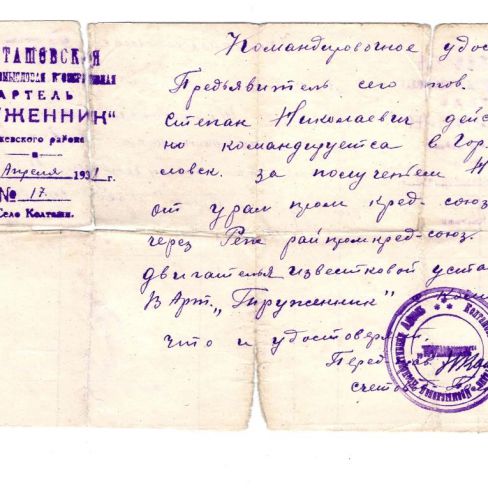 ТАШОВСКАЯ
АРТЕЛЬ
УЖЕННИК"
жевского района
Апреля 1931 г.
№ 17.
Село Колташи.
Командировочное удос
Предъявитель сего тов.
Степан Николаевич дейс
но командируется в Гор.
ловск. за получением
от уралпромкредсоюз
через Реж райпромкред-союз.
двигателья известковой уста
В Арт. „Труженник"
что и удостоверяем
Пред
счетов